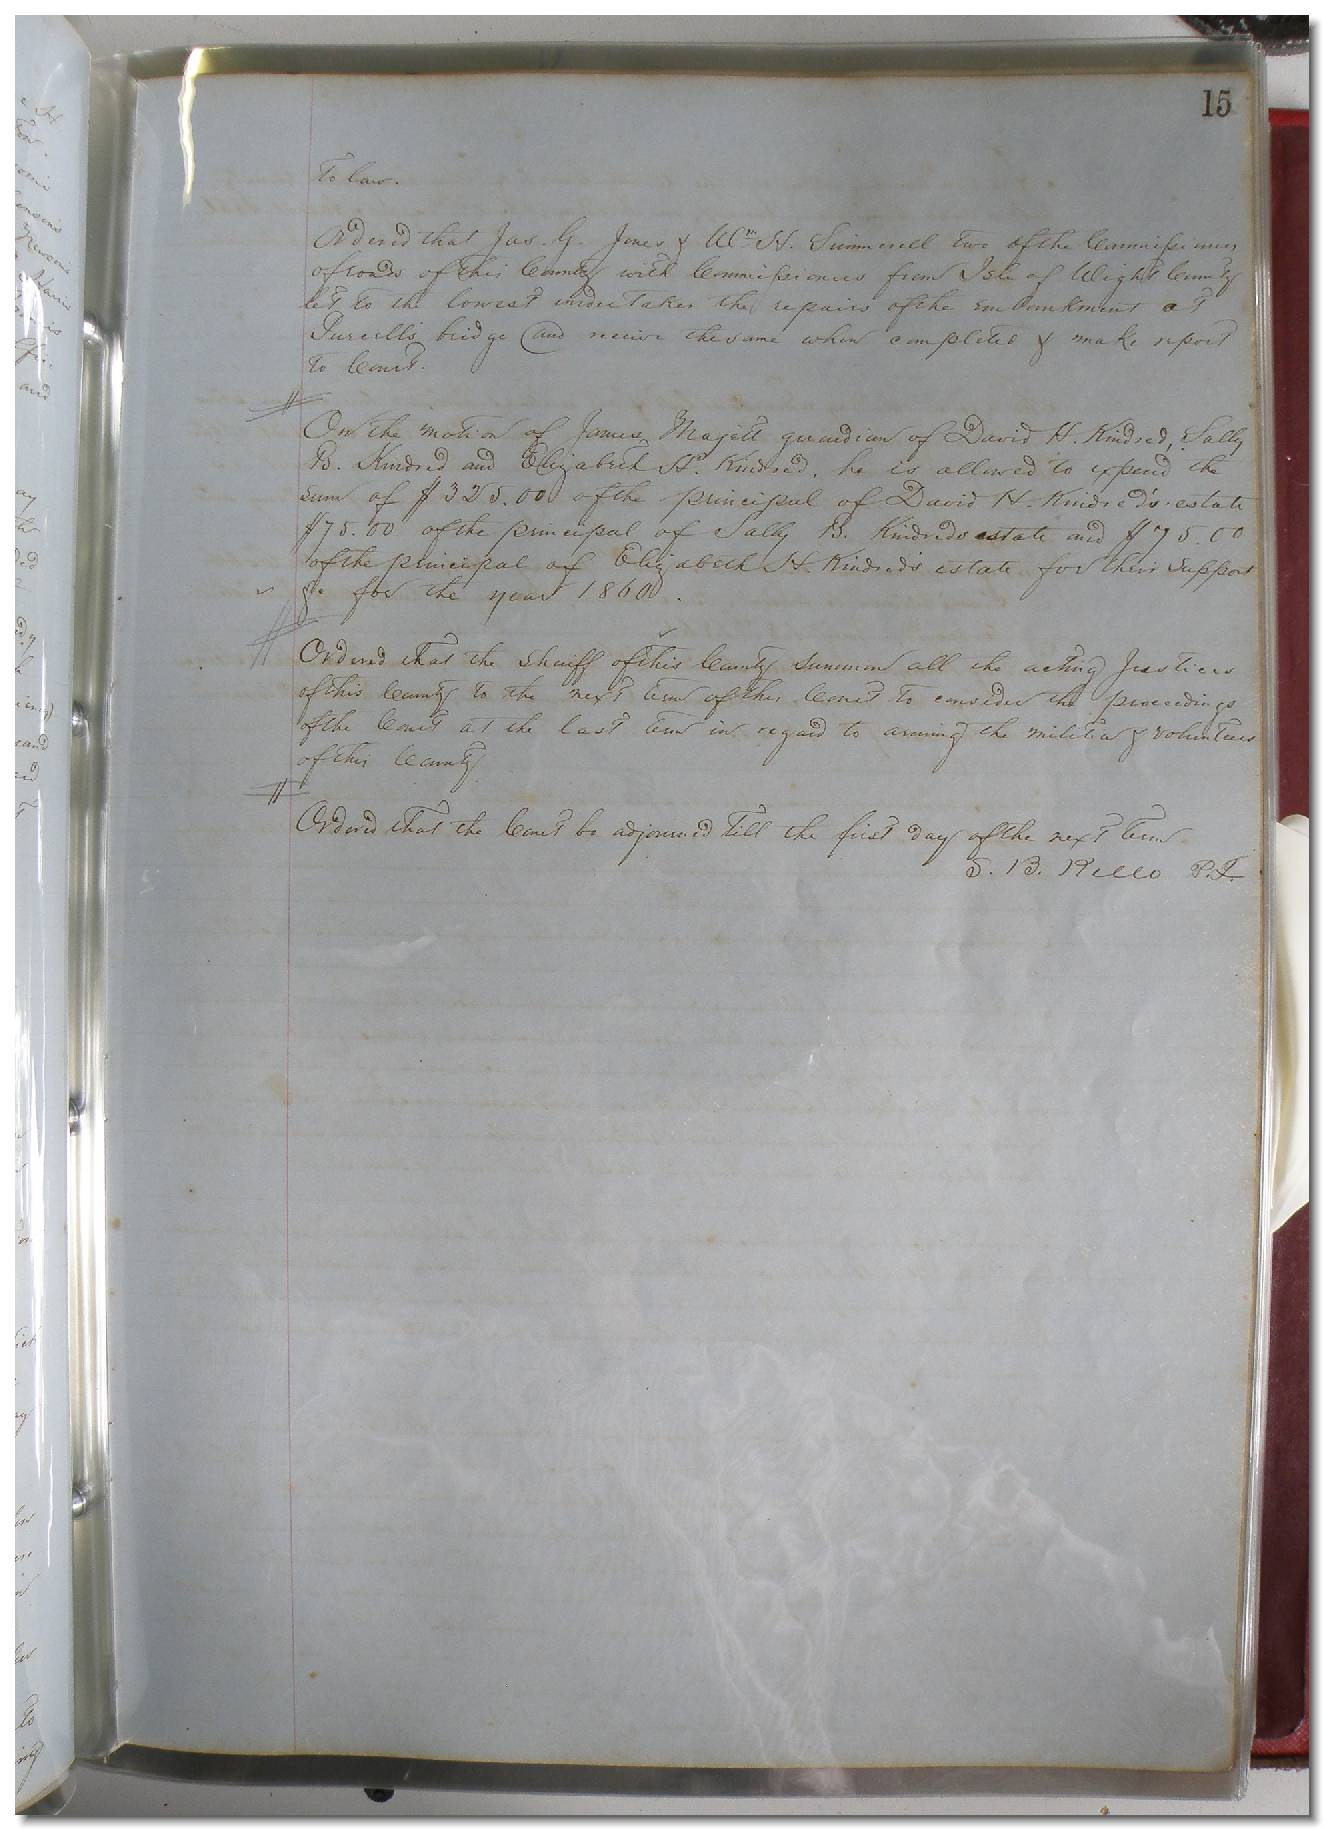 15
to law.
Ordered that Jas. G. Jones & Wm. H. Summerell two of the Commissioners
of roads of this County with Commissioners from Isle of Wight County
let to the lowest undertaker the repairs of the embankment at
Purcells bridge (and receive the same when completed & make report
to Court.
On the motion of James Magett guardian of David H. Kindred, Sally
B. Kindred and Elizabeth H. Kindred, he is allowed to expend the
sum of $325.00 of the principal of David H. Kindred's estate
$75.00 of the principal of Sally B. Kindreds estate and $75.00
of the principal of Elizabeth H. Kindred's estate for their support
&c for the year 1860.
Ordered that the sheriff of this County summon all the acting Justices
of this County to the next term of this Court to consider the proceedings
of the Court at the last term in regard to arming the militia & volunteers
of this County
Ordered that the Court be adjourned till the first day of the next term
S. B. Kello P.J.